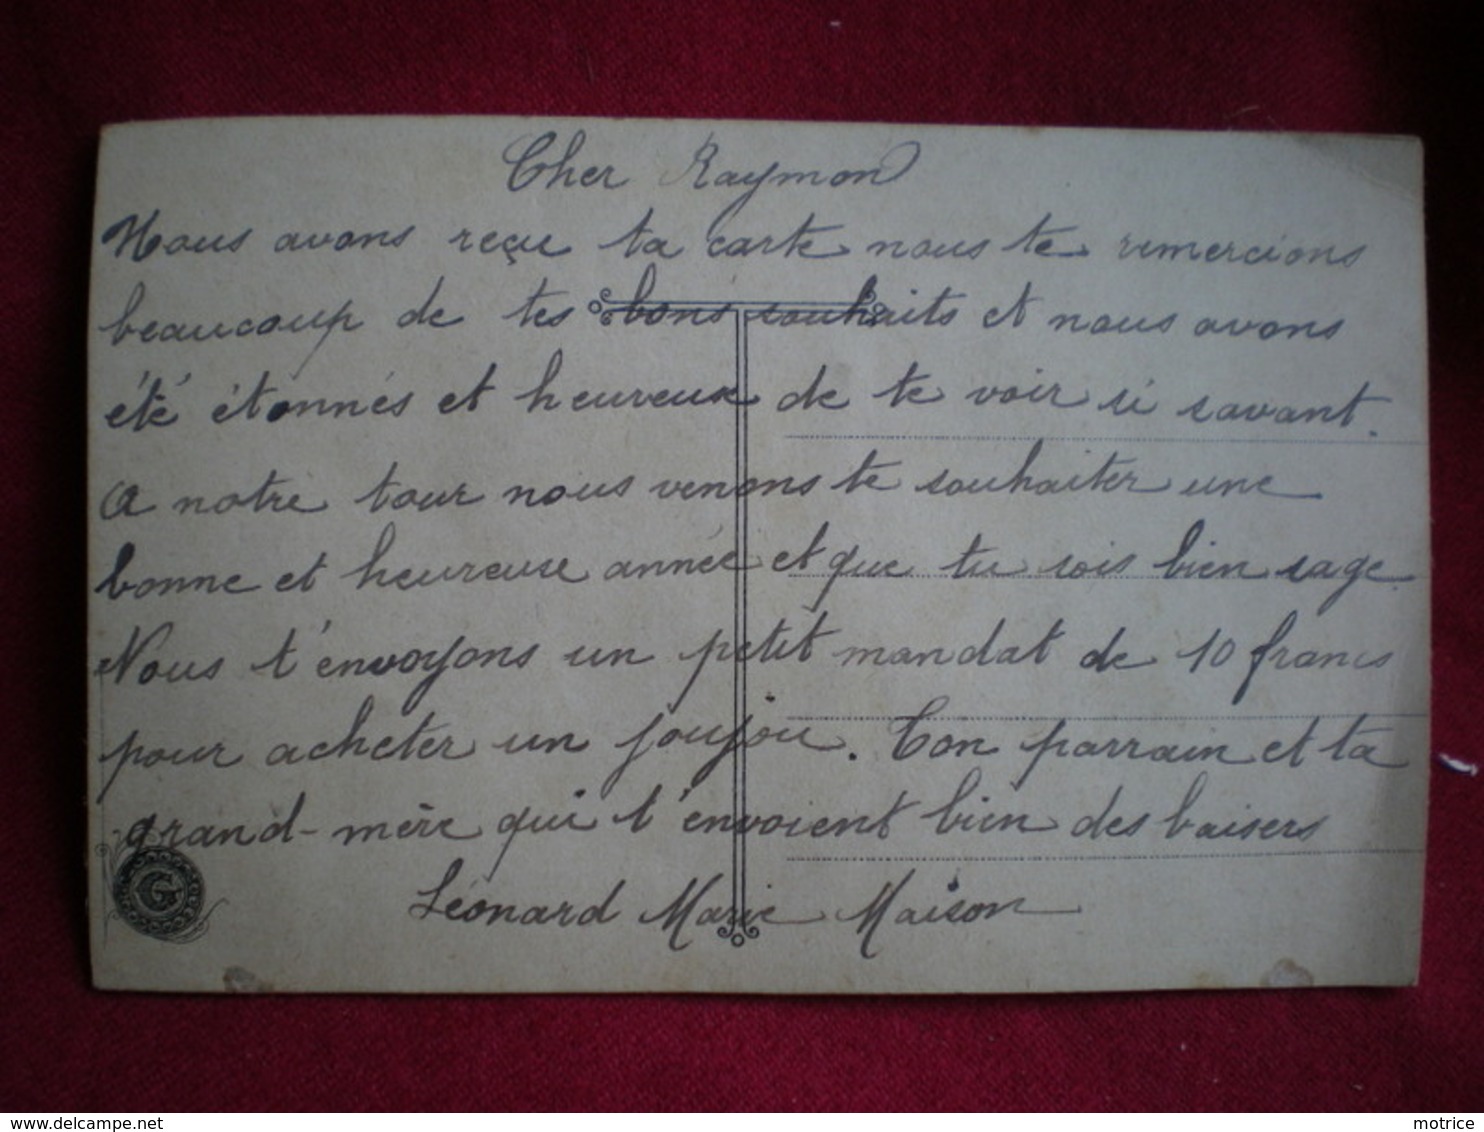 Cher Raymond
Nous avons reçu ta carte nous te remercions
beaucoup de tes bons souhaits et nous avons
été étonnés et heureux de te voir si savant.
A notre tour nous venons te souhaiter une
bonne et heureuse année et que tu sois bien sage
Nous t'envoyons un petit mandat de 10 francs
pour acheter un joujou. Ton parrain et ta
grand-mère qui t'envoient bien des baisers
Léonard Marie Maison
G
delcampe.net
motrice